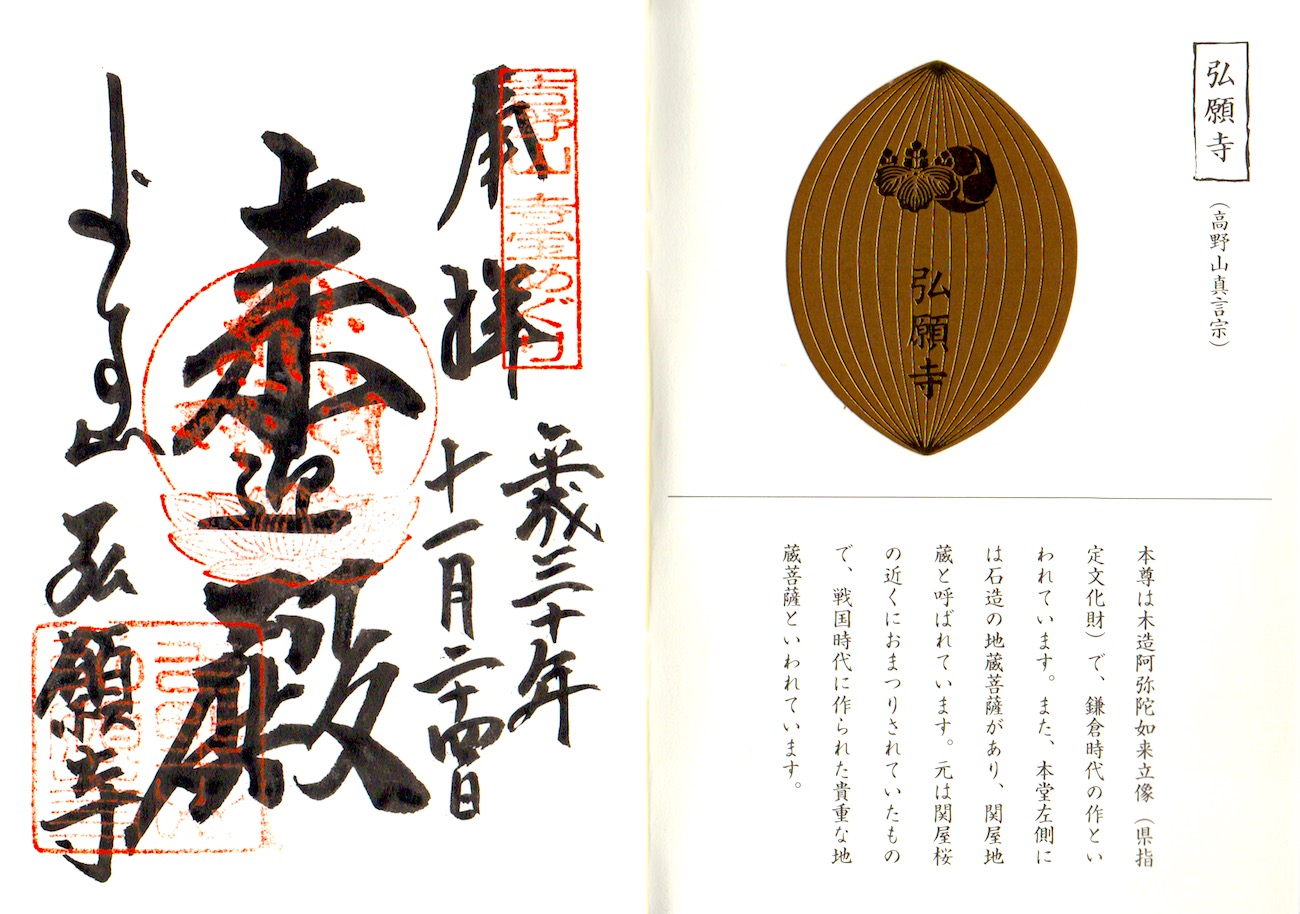 弘願寺
（高野山真言宗）
弘願寺
本尊は木造阿弥陀如来立像（県指
定文化財）で、鎌倉時代の作とい
われています。また、本堂左側に
は石造の地蔵菩薩があり、関屋地
蔵と呼ばれています。元は関屋桜
の近くにおまつりされていたもの
で、戦国時代に作られた貴重な地
蔵菩薩といわれています。
吉野山 寺宝めぐり
奉拝
平成三十年
十一月二十四日
来迎殿
よしの山 弘願寺